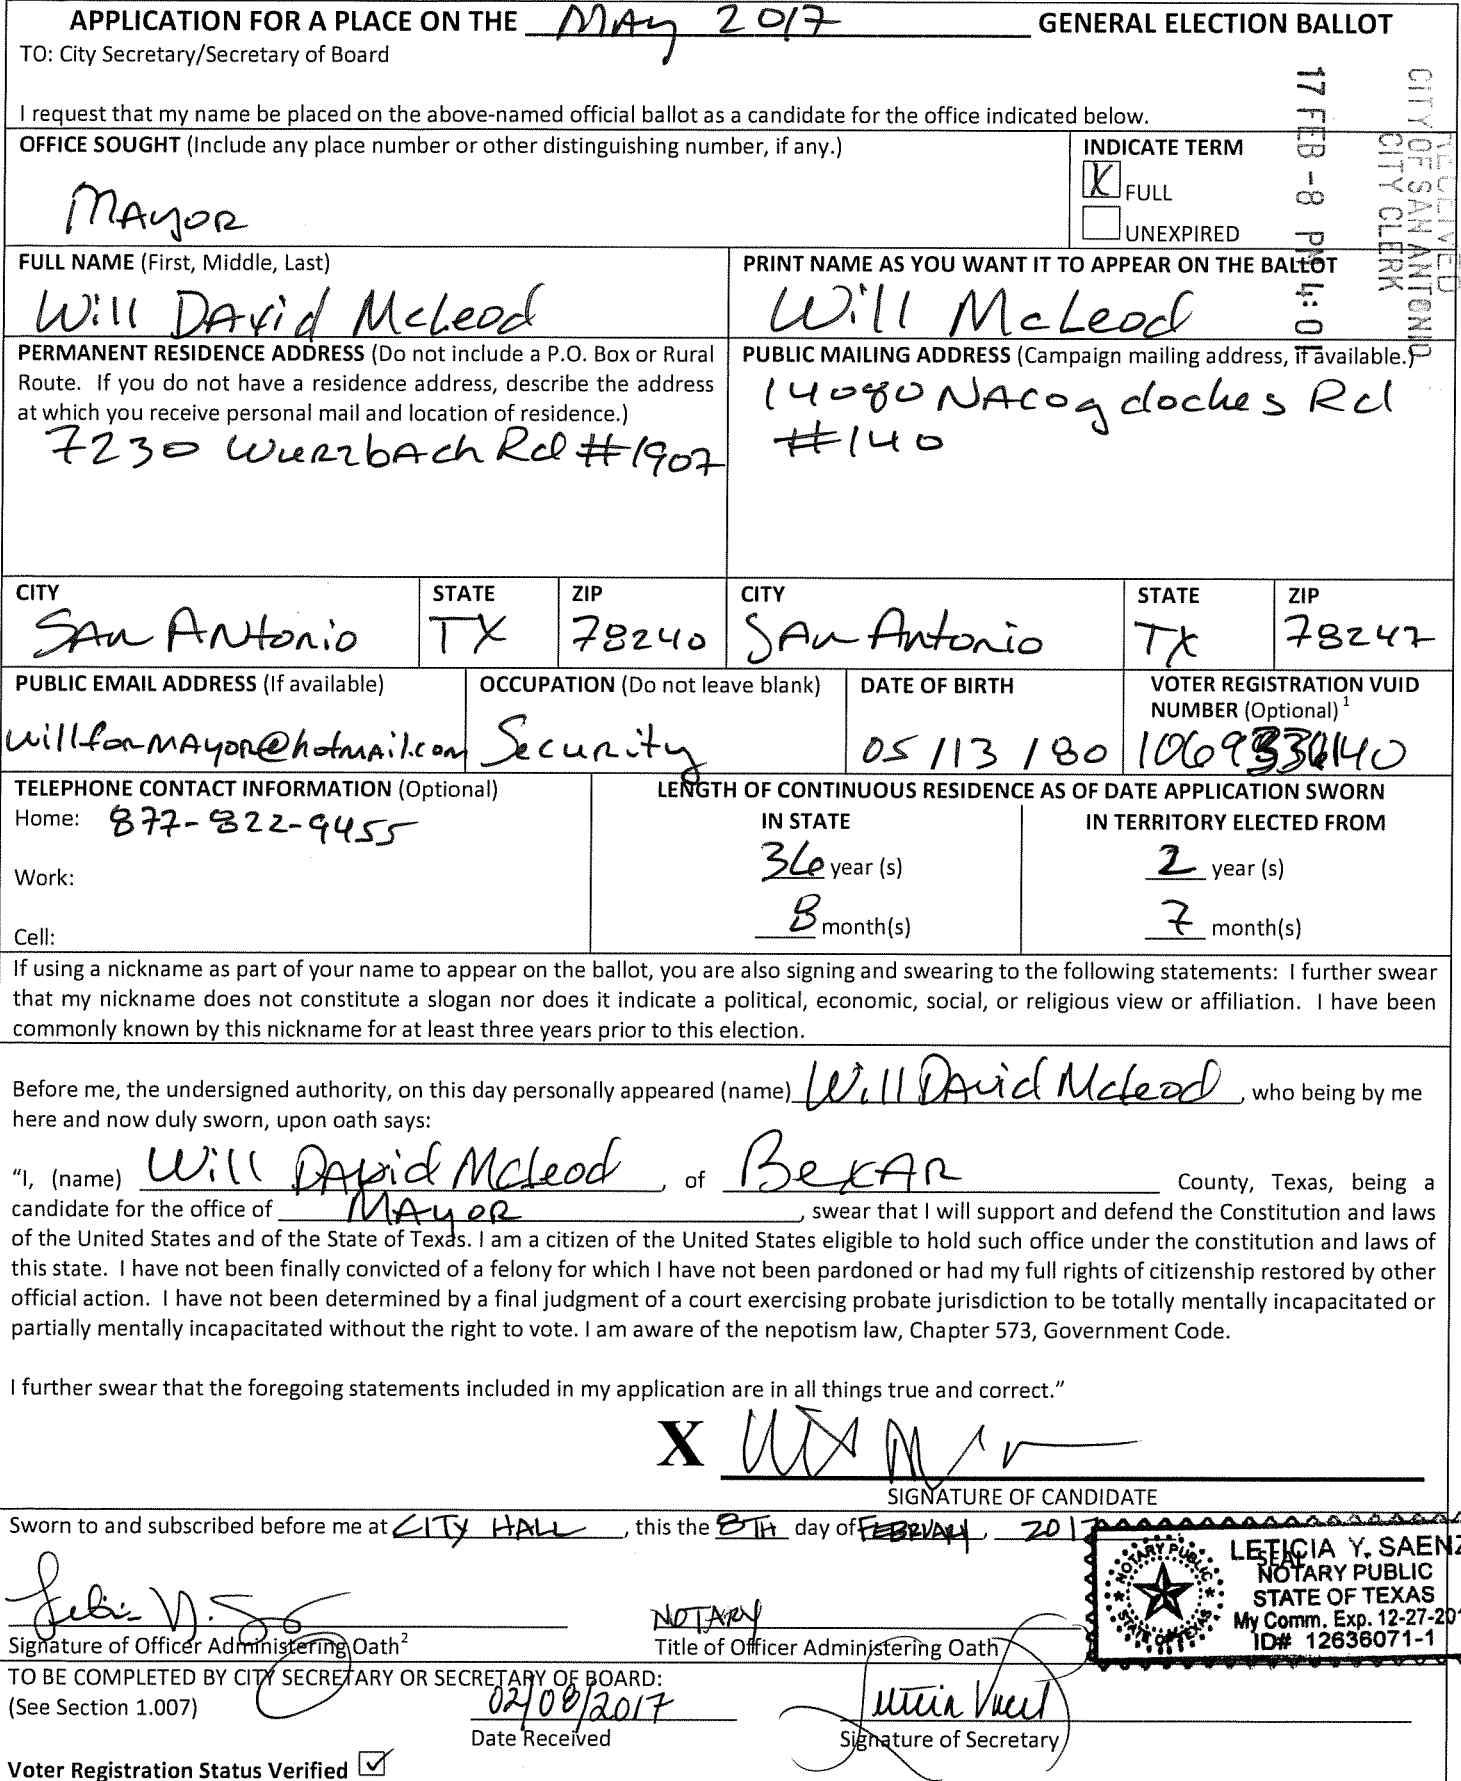 APPLICATION FOR A PLACE ON THE MAY 2017 GENERAL ELECTION BALLOT
TO: City Secretary/Secretary of Board
I request that my name be placed on the above-named official ballot as a candidate for the office indicated below.
RECEIVED
CITY OF SAN ANTONIO
CITY CLERK
17 FEB -8 PM 4: 01
OFFICE SOUGHT (Include any place number or other distinguishing number, if any.)
MAyoR
INDICATE TERM
X FULL
UNEXPIRED
FULL NAME (First, Middle, Last)
Will DAvid McLeod
PRINT NAME AS YOU WANT IT TO APPEAR ON THE BALLOT
Will McLeod
PERMANENT RESIDENCE ADDRESS (Do not include a P.O. Box or Rural
Route. If you do not have a residence address, describe the address
at which you receive personal mail and location of residence.)
7230 WuRzbAch Rd #1907
PUBLIC MAILING ADDRESS (Campaign mailing address, if available.)
14080 NACogdoches Rd
#140
CITY STATE ZIP CITY STATE ZIP
SAn ANtonio TX 78240 SAn Antonio TX 78247
PUBLIC EMAIL ADDRESS (If available)
willforMAyoR@hotmAil.com
OCCUPATION (Do not leave blank)
Security
DATE OF BIRTH
05/13/80
VOTER REGISTRATION VUID
NUMBER (Optional) 1
TELEPHONE CONTACT INFORMATION (Optional)
Home: 877-822-9455
Work:
Cell:
LENGTH OF CONTINUOUS RESIDENCE AS OF DATE APPLICATION SWORN
IN STATE
36 year (s)
8 month(s)
IN TERRITORY ELECTED FROM
2 year (s)
7 month(s)
If using a nickname as part of your name to appear on the ballot, you are also signing and swearing to the following statements: I further swear
that my nickname does not constitute a slogan nor does it indicate a political, economic, social, or religious view or affiliation. I have been
commonly known by this nickname for at least three years prior to this election.
Before me, the undersigned authority, on this day personally appeared (name) Will DAvid McLeod, who being by me
here and now duly sworn, upon oath says:
"I, (name) Will DAvid McLeod, of BexAR County, Texas, being a
candidate for the office of MAyoR, swear that I will support and defend the Constitution and laws
of the United States and of the State of Texas. I am a citizen of the United States eligible to hold such office under the constitution and laws of
this state. I have not been finally convicted of a felony for which I have not been pardoned or had my full rights of citizenship restored by other
official action. I have not been determined by a final judgment of a court exercising probate jurisdiction to be totally mentally incapacitated or
partially mentally incapacitated without the right to vote. I am aware of the nepotism law, Chapter 573, Government Code.
I further swear that the foregoing statements included in my application are in all things true and correct."
X
SIGNATURE OF CANDIDATE
Sworn to and subscribed before me at CITY HALL, this the 8TH day of FEBRUARY, 2017
SEAL
LETICIA Y. SAENZ
NOTARY PUBLIC
STATE OF TEXAS
My Comm. Exp. 12-27-201
ID# 12636071-1
NOTARY PUBLIC
STATE OF TEXAS
NOTARY
Signature of Officer Administering Oath2
Title of Officer Administering Oath
TO BE COMPLETED BY CITY SECRETARY OR SECRETARY OF BOARD:
(See Section 1.007)
02/08/2017
Date Received
Signature of Secretary
Voter Registration Status Verified